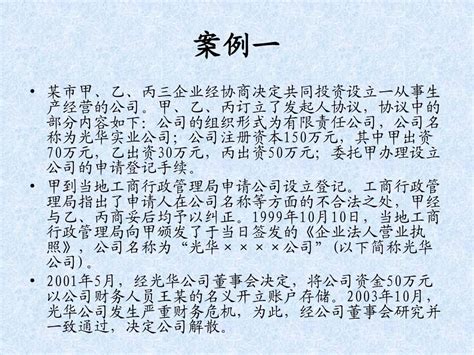 案例一
• 某市甲、乙、丙三企业经协商决定共同投资设立一从事生
产经营的公司。甲、乙、丙订立了发起人协议，协议中的
部分内容如下：公司的组织形式为有限责任公司，公司名
称为光华实业公司；公司注册资本150万元，其中甲出资
70万元，乙出资30万元，丙出资50万元；委托甲办理设立
公司的申请登记手续。
• 甲到当地工商行政管理局申请公司设立登记。工商行政管
理局指出了申请人在公司名称等方面的不合法之处，甲经
与乙、丙商妥后均予以纠正。1999年10月10日，当地工商
行政管理局向甲颁发了于当日签发的《企业法人营业执
照》，公司名称为“光华××××公司”(以下简称光华
公司)。
• 2001年5月，经光华公司董事会决定，将公司资金50万元
以公司财务人员王某的名义开立账户存储。2003年10月，
光华公司发生严重财务危机，为此，经公司董事会研究并
一致通过，决定公司解散。